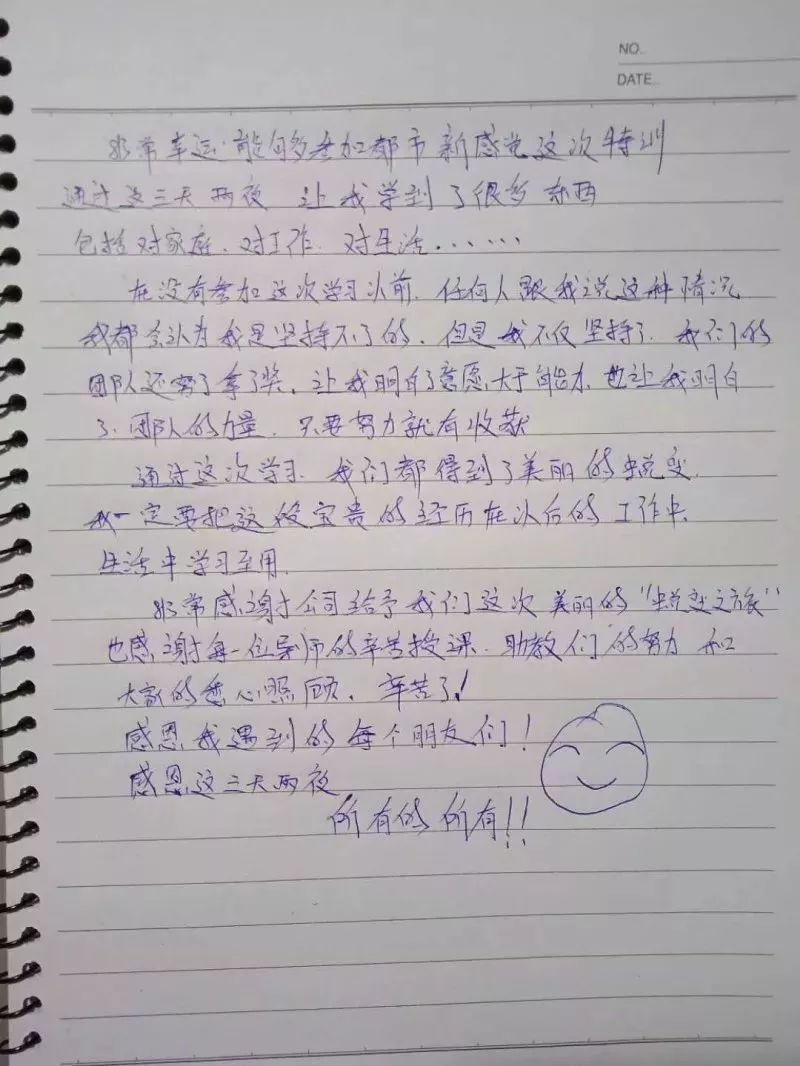 NO.
DATE
非常幸运.能够参加都市新感觉这次特训
通过这三天两夜 让我学到了很多东西
包括对家庭、对工作、对生活......
在没有参加这次学习以前、任何人跟我说这种情况
我都会认为我是坚持不了的、但是我不仅坚持了、我们的
团队还拿了奖、让我明白了意愿大于能力、也让我明白
了、团队的力量、只要努力就有收获
通过这次学习、我们都得到了美丽的蜕变
我一定要把这段宝贵的经历在以后的工作中、
生活中学习至用、
非常感谢公司给予我们这次美丽的“蜕变之旅”
也感谢每一位导师的辛苦授课、助教们的努力 和
大家的悉心照顾、辛苦了!
感恩我遇到的每个朋友们!
感恩这三天两夜
所有的所有!!